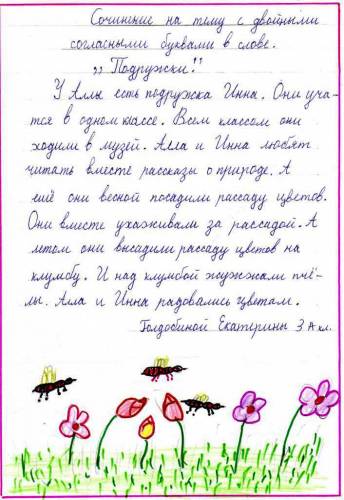 Сочинение на тему с двойными
согласными буквами в слове.
„Подружки!"
У Аллы есть подружка Инна. Они уча-
тся в одном классе. Всем классом они
ходили в музей. Алла и Инна любят
читать вместе рассказы о природе. А
ещё они весной посадили рассаду цветов.
Они вместе ухаживали за рассадой. А
летом они высадили рассаду цветов на
клумбу. И над клумбой жужжали пчё-
лы. Алла и Инна радовались цветам.
Голдобиной Екатерины 3 А кл.